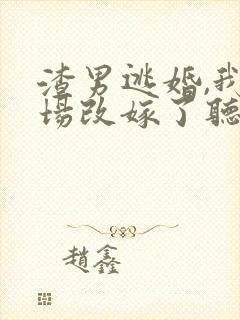 渣男逃婚,我
场改嫁了聽
趙鑫